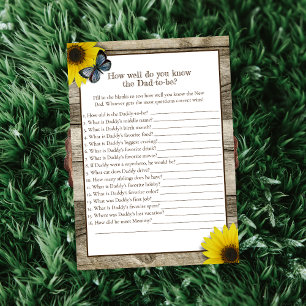 How well do you know
the Dad-to-be?
Fill in the blanks to see how well you know the New
Dad. Whoever gets the most questions correct wins!
1. How old is the Daddy-to-be?
2. What is Daddy's middle name?
3. What is Daddy's birth month?
4. What is Daddy's favorite food?
5. What is Daddy's biggest craving?
6. What is Daddy's favorite drink?
7. What is Daddy's favorite movie?
8. If Daddy was a superhero, he would be?
9. What car does Daddy drive?
10. How many siblings does he have?
11. What is Daddy's favorite hobby?
12. What is Daddy's favorite color?
13. What was Daddy's first job?
14. What is Daddy's favorite sport?
15. What was Daddy's last vacation?
16. How did he meet Mommy?